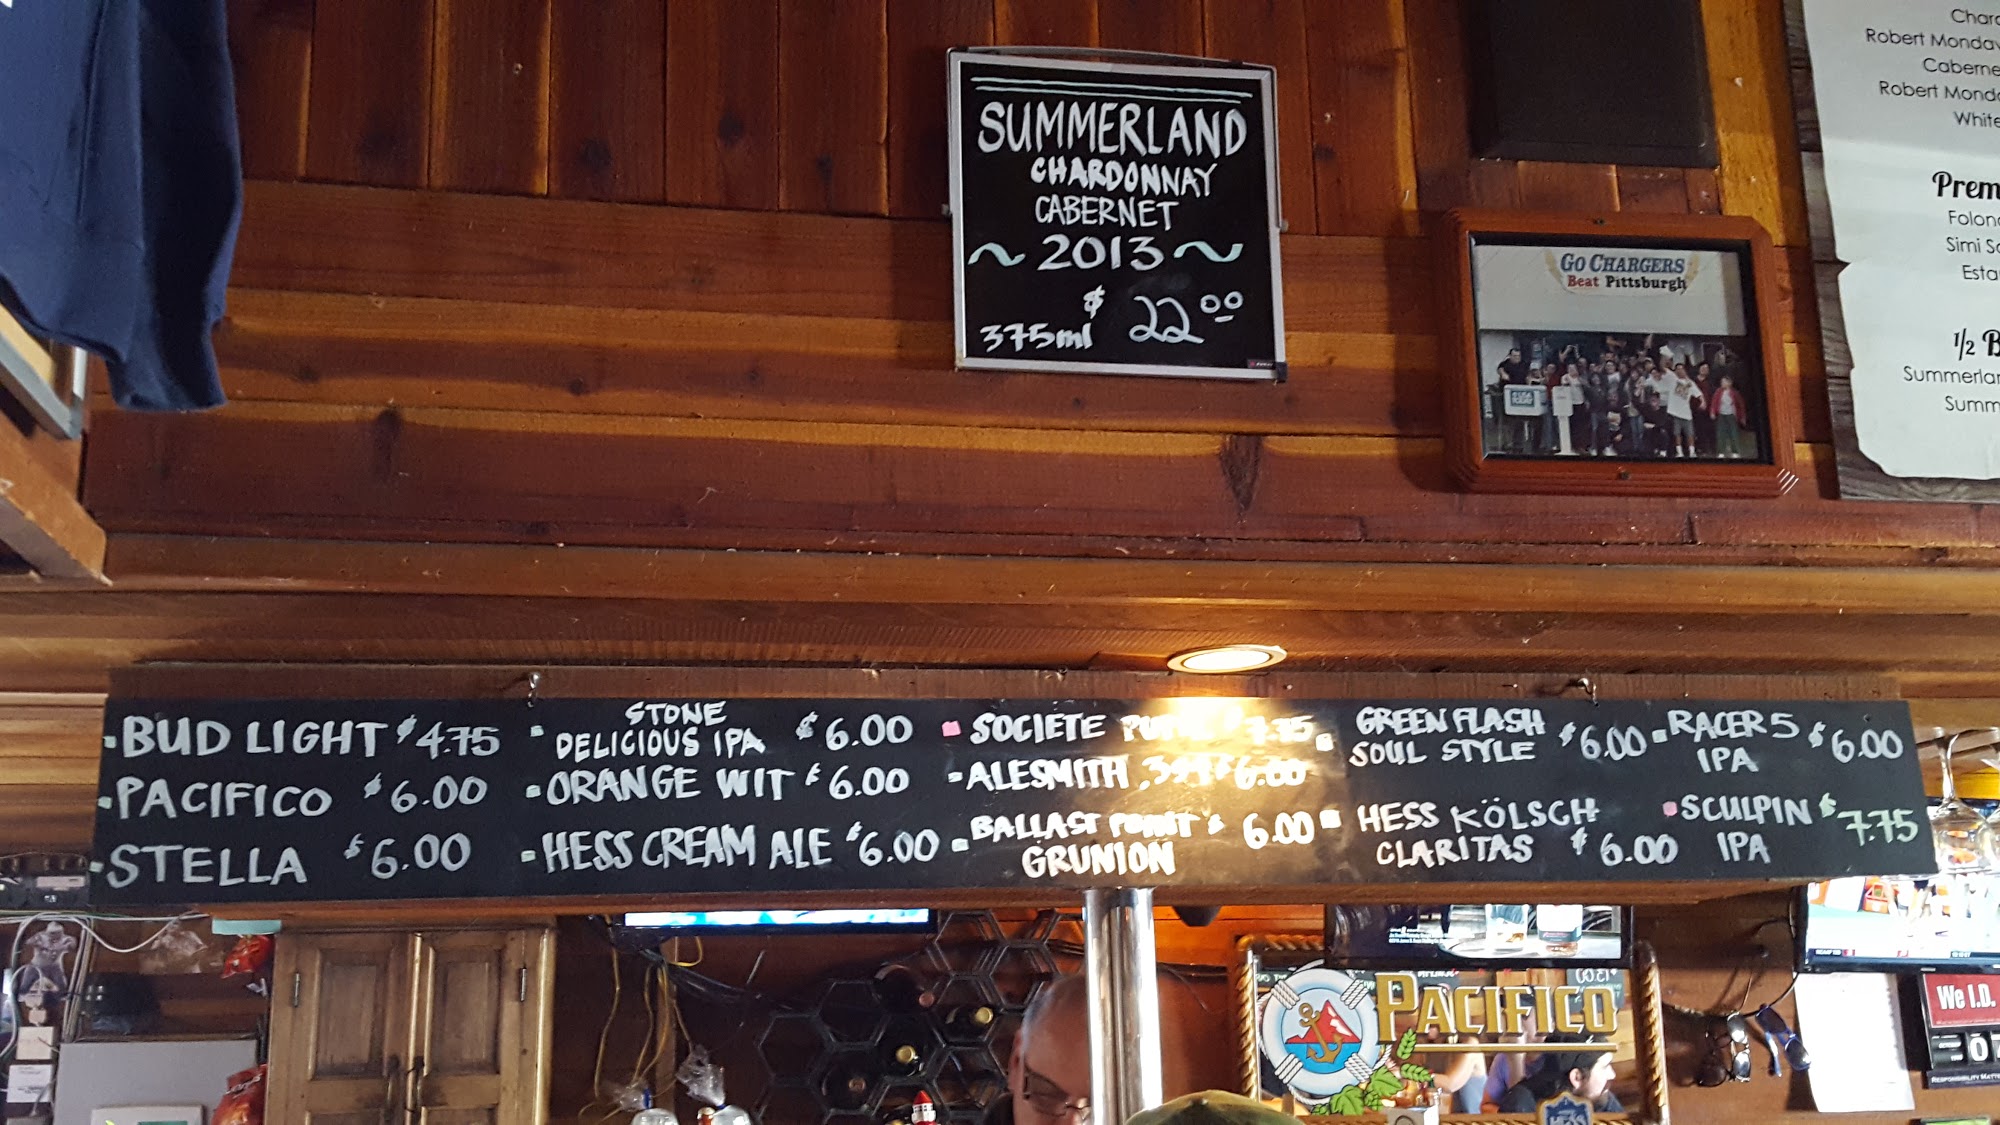 SUMMERLAND
CHARDONNAY
CABERNET
~ 2013 ~
375ml $ 22.00
GO CHARGERS
Beat Pittsburgh
Robert
Robert
White
Simi
1/2
BUD LIGHT $4.75
PACIFICO $6.00
STELLA $6.00
STONE
DELICIOUS IPA $6.00
ORANGE WIT $6.00
HESS CREAM ALE $6.00
SOCIETE $7.75
ALESMITH .394 $6.00
BALLAST POINT $6.00
GRUNION
GREEN FLASH
SOUL STYLE $6.00
HESS KÖLSCH
CLARITAS $6.00
RACER 5
IPA $6.00
SCULPIN
IPA $7.75
PACIFICO
We I.D.